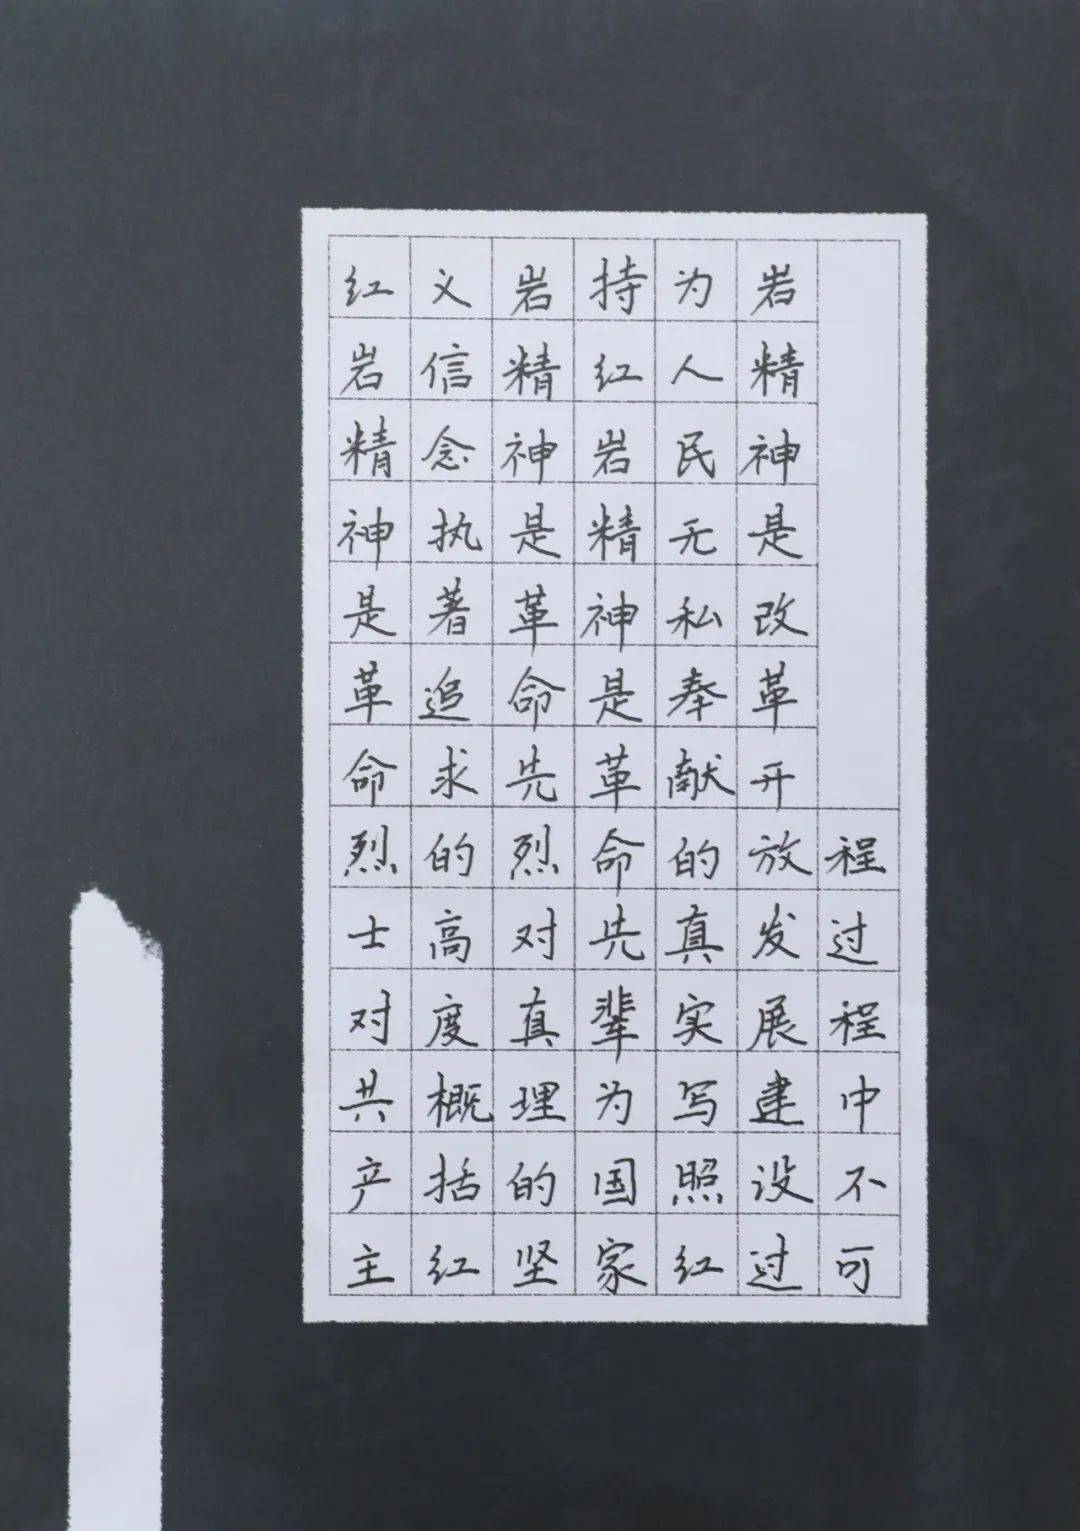 红岩精神是革命烈士对共产主
义信念执著追求的高度概括红
岩精神是革命先烈对真理的坚
持红岩精神是革命先辈为国家
为人民无私奉献的真实写照红
岩精神是改革开放发展建设过
程过程中不可